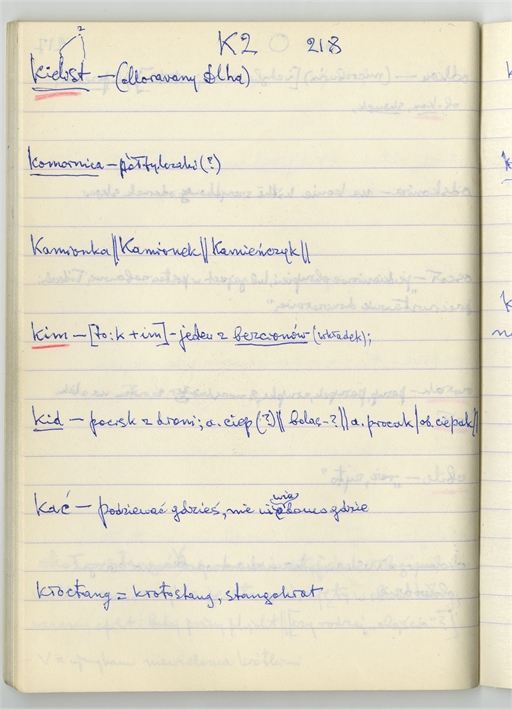 K2 218
2
Kielist — (Morawany Ilha)
Komornica — półtylczaki (?)
Kamionka || Kamionek || Kamieńczyk ||
kim — [to: k + im] - jeden z bezcionów (wkładek);
kid — pocisk z broni; a. ciep (?) || bolas - ? || a. procak | ob. ciepak ||
kać — podziewać gdzieś, nie wiadomo gdzie
kroctang = krotostang, stangokrot